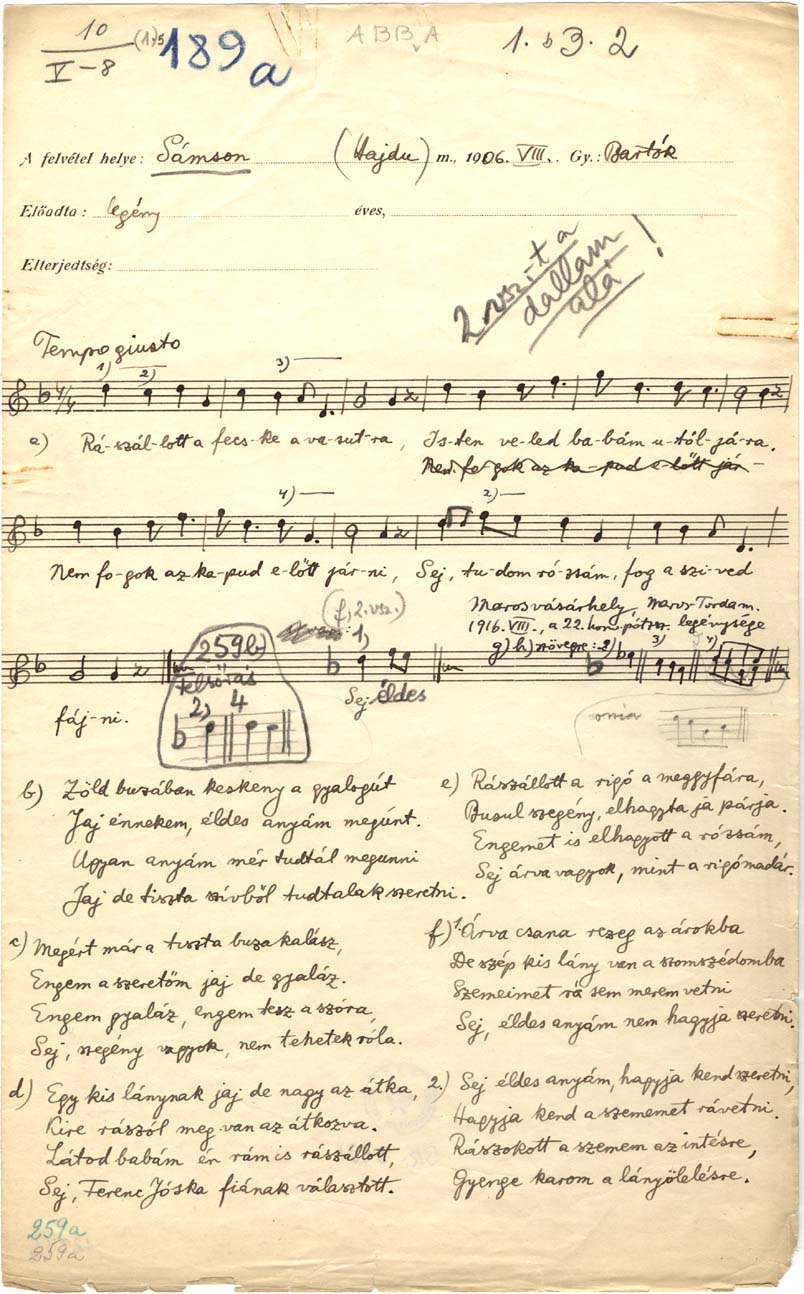 10
V-8
(1,)5
189a
A B B A
1. b3. 2
A felvétel helye: Sámson (Hajdu) m., 1906. VIII. Gy.: Bartók
Előadta: legény éves,
Elterjedtség:
2. vsz.-t a
dallam
alá!
Tempo giusto
1) 2) 3)
a) Rá-szál-lott a fecs-ke a va-sut-ra, Is-ten ve-led ba-bám u-tól-já-ra.
Nem fo-gok az ka-pud e-lőtt jár-
4) 2)
Nem fo-gok az ka-pud e-lőtt jár-ni, Sej, tu-dom ró-zsám, fog a szi-ved
(f, 2. vsz.)
Marosvásárhely, Maros-Tordam.
1916. VIII., a 22. legénysége
g) h) szövegre: 2) 3) 4)
259b)
felsőrás
2) 4
1)
fáj-ni.
Sej éldes
b) Zöld buzában keskeny a gyalogút
Jaj énnekem, éldes anyám megúnt.
Ugyan anyám mér tudtál megunni
Jaj de tiszta szívből tudtalak szeretni.
c) Megért már a tiszta buzakalász,
Engem a szeretőm jaj de gyaláz.
Engem gyaláz, engem tesz a szóra,
Sej, szegény vagyok, nem tehetek róla.
d) Egy kis lánynak jaj de nagy az átka,
Kire rászól meg van az átkozva.
Látod babám én rám is rászállott,
Sej, Ferenc Jóska fiának választott.
e) Rászállott a rigó a meggyfára,
Busul szegény, elhagyta ja párja.
Engemet is elhagyott a rózsám,
Sej árva vagyok, mint a rigómadár.
f) 1. Árva csana rezeg az árokba
De szép kis lány van a szomszédomba
Szemeimet rá sem merem vetni
Sej, éldes anyám nem hagyja szeretni.
2.) Sej éldes anyám, hagyja kend szeretni,
Hagyja kend a szememet rávetni.
Rászokott a szemem az intésre,
Gyenge karom a lányölelésre.
259a
259a